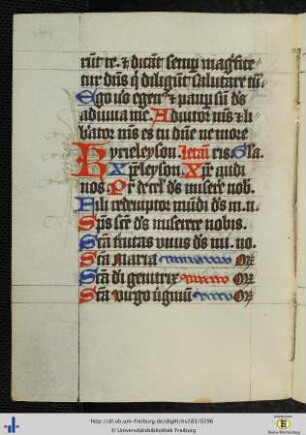 rūt te. ⁊ dicāt semp magͥfice
tur dn̄s q̇ diligūt salutare tū.
Ego v̊o egen⁹ ⁊ paup sū ds̄
adiuua me. Adiutor m̄s ⁊ li
bator m̄s es tu dn̄e ne more
Kyrieleyson. letaī ris. Gl̄a.
Xp̄eleyson. Xp̄e audi
nos. Pr̄ de cel̄ ds̄ misere nob̄.
Fili redemptor mūdi ds̄ m. n.
Sps̄ scē ds̄ miserere nobis.
Scā t̄nitas vnus ds̄ mi. no.
Scā Maria Or̄
Scā di genitrix Or̄
Scā virgo v̄ginū Or̄
http://dl.ub.uni-freiburg.de/diglit/hs283/0296
© Universitätsbibliothek Freiburg